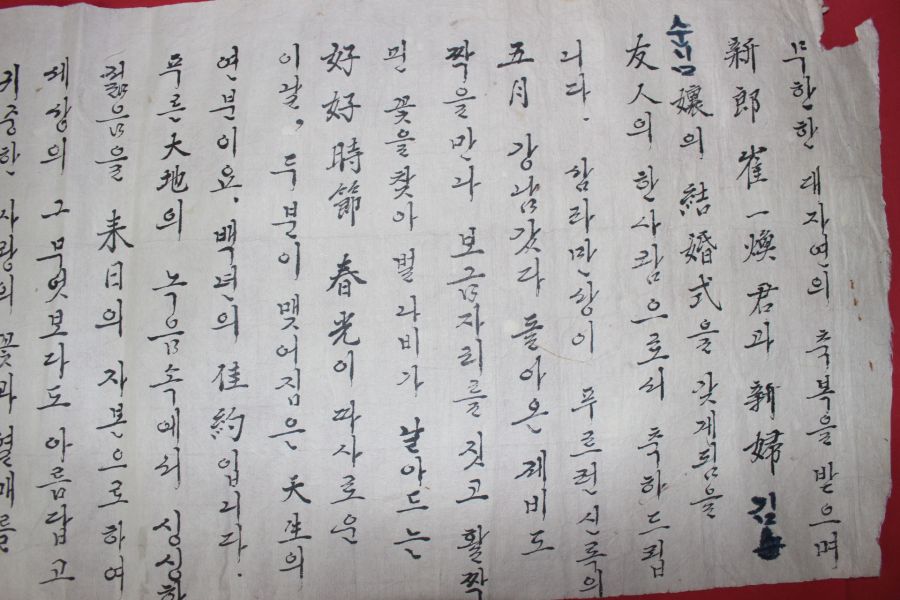 무한한 대자연의 축복을 받으며
新郎 崔一煥君과 新婦 김
순임孃의 結婚式을 갖게됨을
友人의 한사람으로서 축하드립
니다. 삼라만상이 푸르런 신록의
五月 강남갔다 돌아온 제비도
짝을만나 보금자리를 짓고 활짝
핀 꽃을찾아 벌나비가 날아드는
好好時節 春光이 따사로운
이날, 두분이 맺어짐은 天生의
연분이요, 백년의 佳約입니다.
푸른天地의 녹음속에서 싱싱한
젊음을 来日의 자본으로 하여
세상의 그무엇보다도 아름답고
귀중한 사랑의 꽃과 열매를